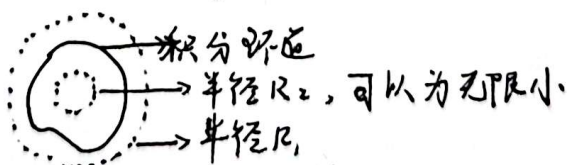 积分环道
半径R₂，可以为无限小.
半径R₁